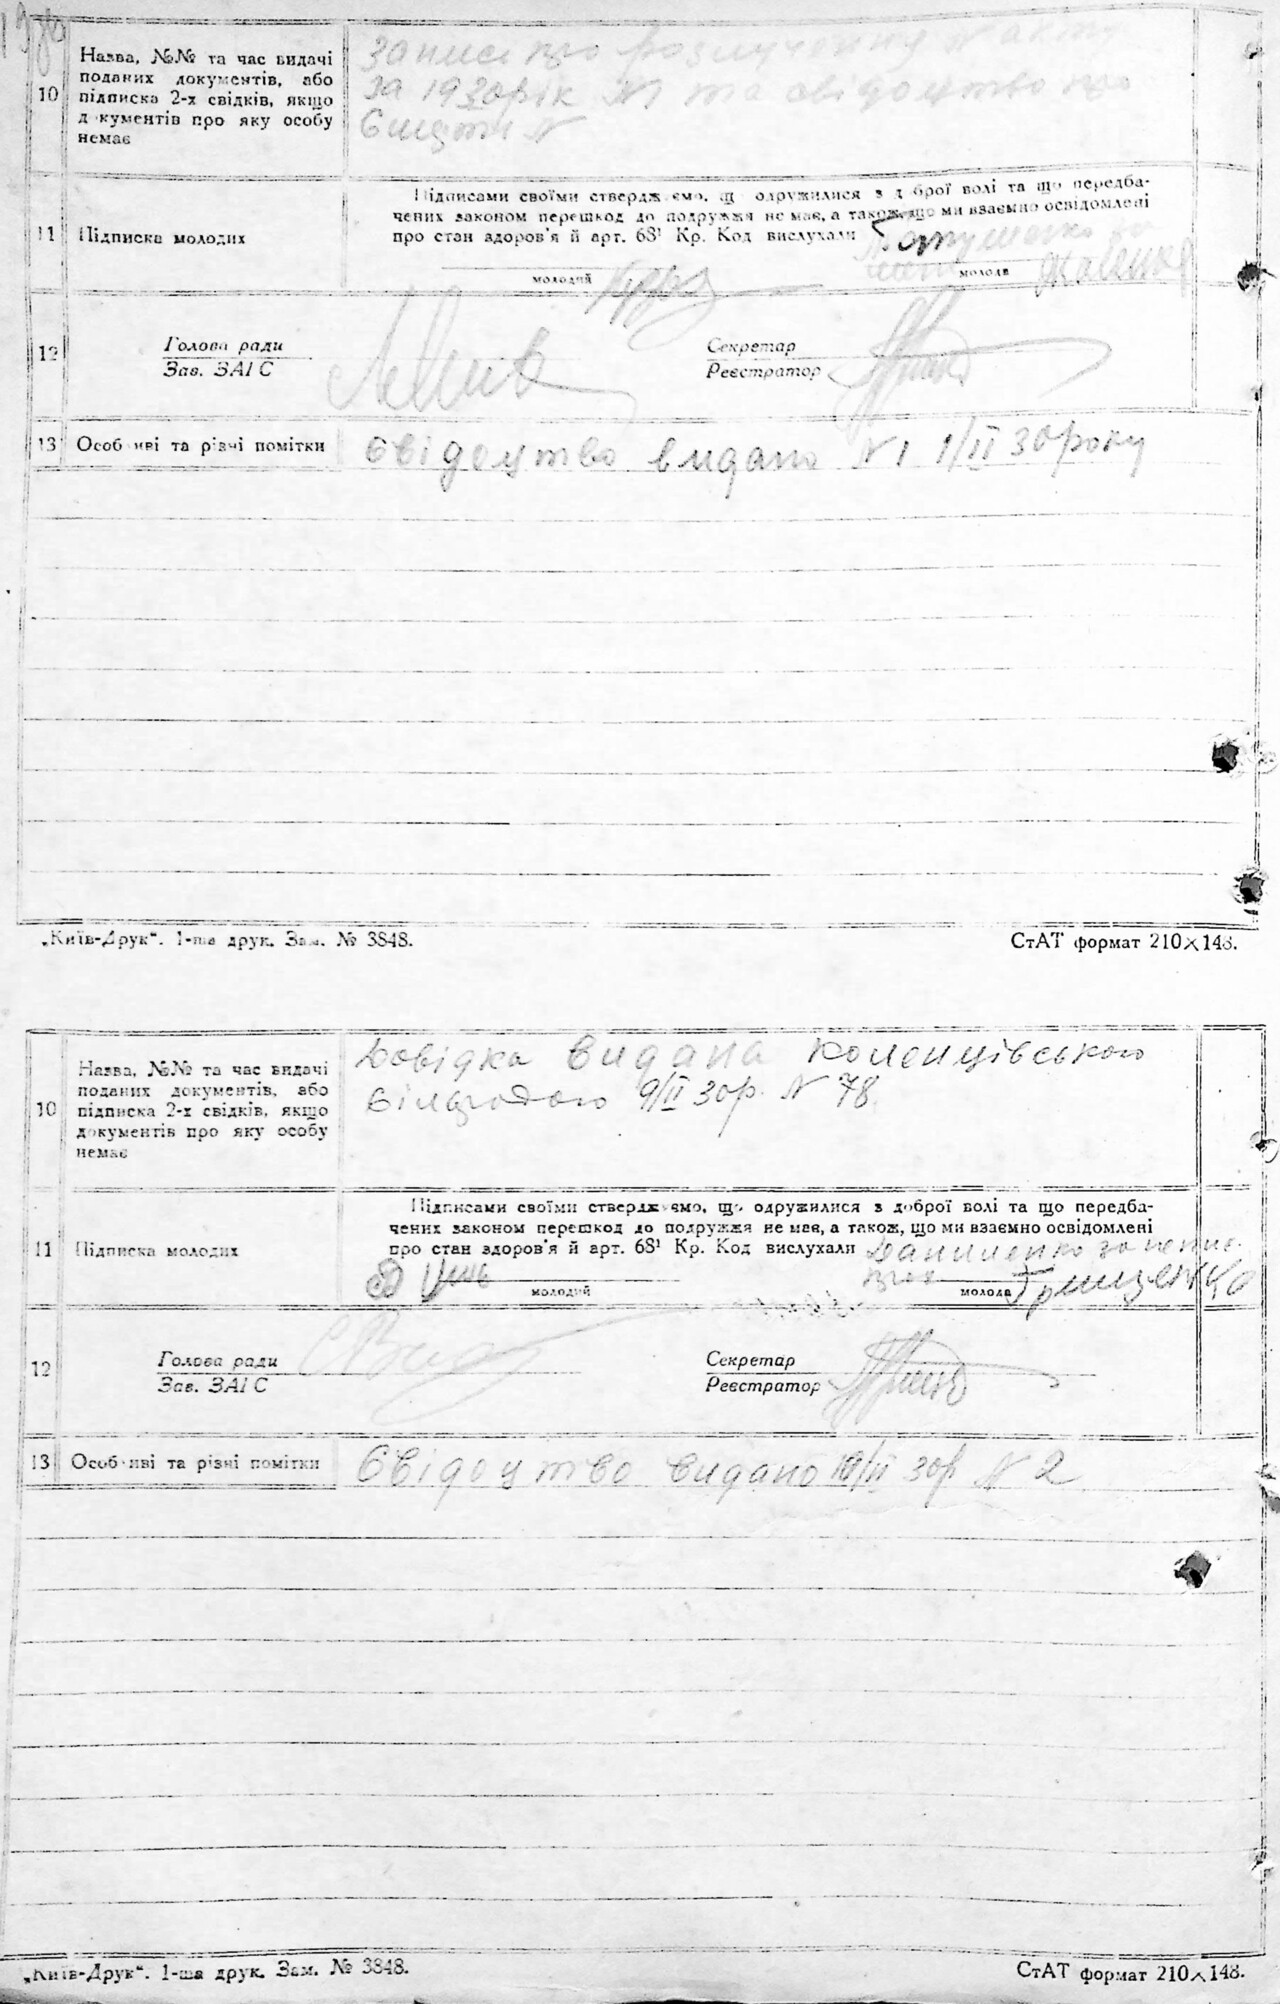 10
Назва, №№ та час видачі
поданих документів, або
підписка 2-х свідків, якщо
д кументів про яку особу
немає
Запис про розлучення N акту
за 1930 рік N1 та свідоцтво про
N
11
Підписка молодих
Підписами своїми стверджуємо, що одружилися з доброї волі та що передба-
чених законом перешкод до подружжя не має, а також, що ми взаємно освідомлені
про стан здоров'я й арт. 68¹ Кр. Код вислухали
молодий
молода
12
Голова ради
Зав. ЗАГС
Секретар
Реєстратор
13
Особливі та різні помітки
Свідоцтво видано N1 1/II 30 року
„Київ-Друк“. 1-ша друк. Зам. № 3848.
СтАТ формат 210×148.
10
Назва, №№ та час видачі
поданих документів, або
підписка 2-х свідків, якщо
документів про яку особу
немає
Довідка видана Коленцівською
Сільрадою 9/II 30 р. N 78
11
Підписка молодих
Підписами своїми стверджуємо, що одружилися з доброї волі та що передба-
чених законом перешкод до подружжя не має, а також, що ми взаємно освідомлені
про стан здоров'я й арт. 68¹ Кр. Код вислухали Даниленко за непис.
молодий
молода
Грищенко
12
Голова ради
Зав. ЗАГС
Секретар
Реєстратор
13
Особливі та різні помітки
Свідоцтво видано 10/II 30р N 2
„Київ-Друк“. 1-ша друк. Зам. № 3848.
СтАТ формат 210×148.